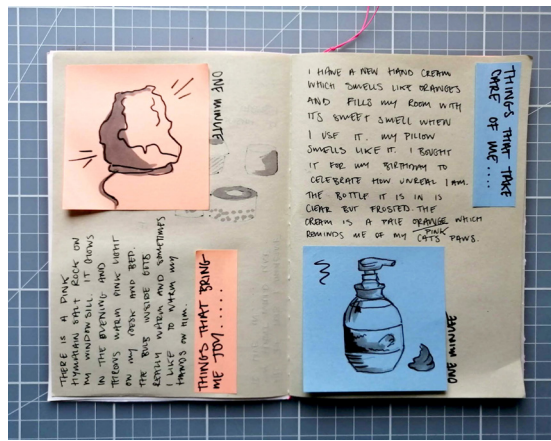 ONE MINUTE
THERE IS A PINK
HYMALAIN SALT ROCK ON
MY WINDOWSILL. IT GLOWS
IN THE EVENING AND
THROWS WARM PINK LIGHT
ON MY DESK AND BED.
THE BULB INSIDE GETS
REALLY WARM AND SOMETIMES
I LIKE TO WARM MY
HANDS ON HIM.
THINGS THAT BRING
ME JOY.....
I HAVE A NEW HAND CREAM
WHICH SMELLS LIKE ORANGES
AND FILLS MY ROOM WITH
ITS SWEET SMELL WHEN
I USE IT. MY PILLOW
SMELLS LIKE IT. I BOUGHT
IT FOR MY BIRTHDAY TO
CELEBRATE HOW UNREAL I AM.
THE BOTTLE IT IS IN IS
CLEAR BUT FROSTED THE
CREAM IS A PALE ORANGE WHICH
PINK
REMINDS ME OF MY CATS PAWS.
THINGS THAT TAKE
CARE OF ME....
ONE MINUTE